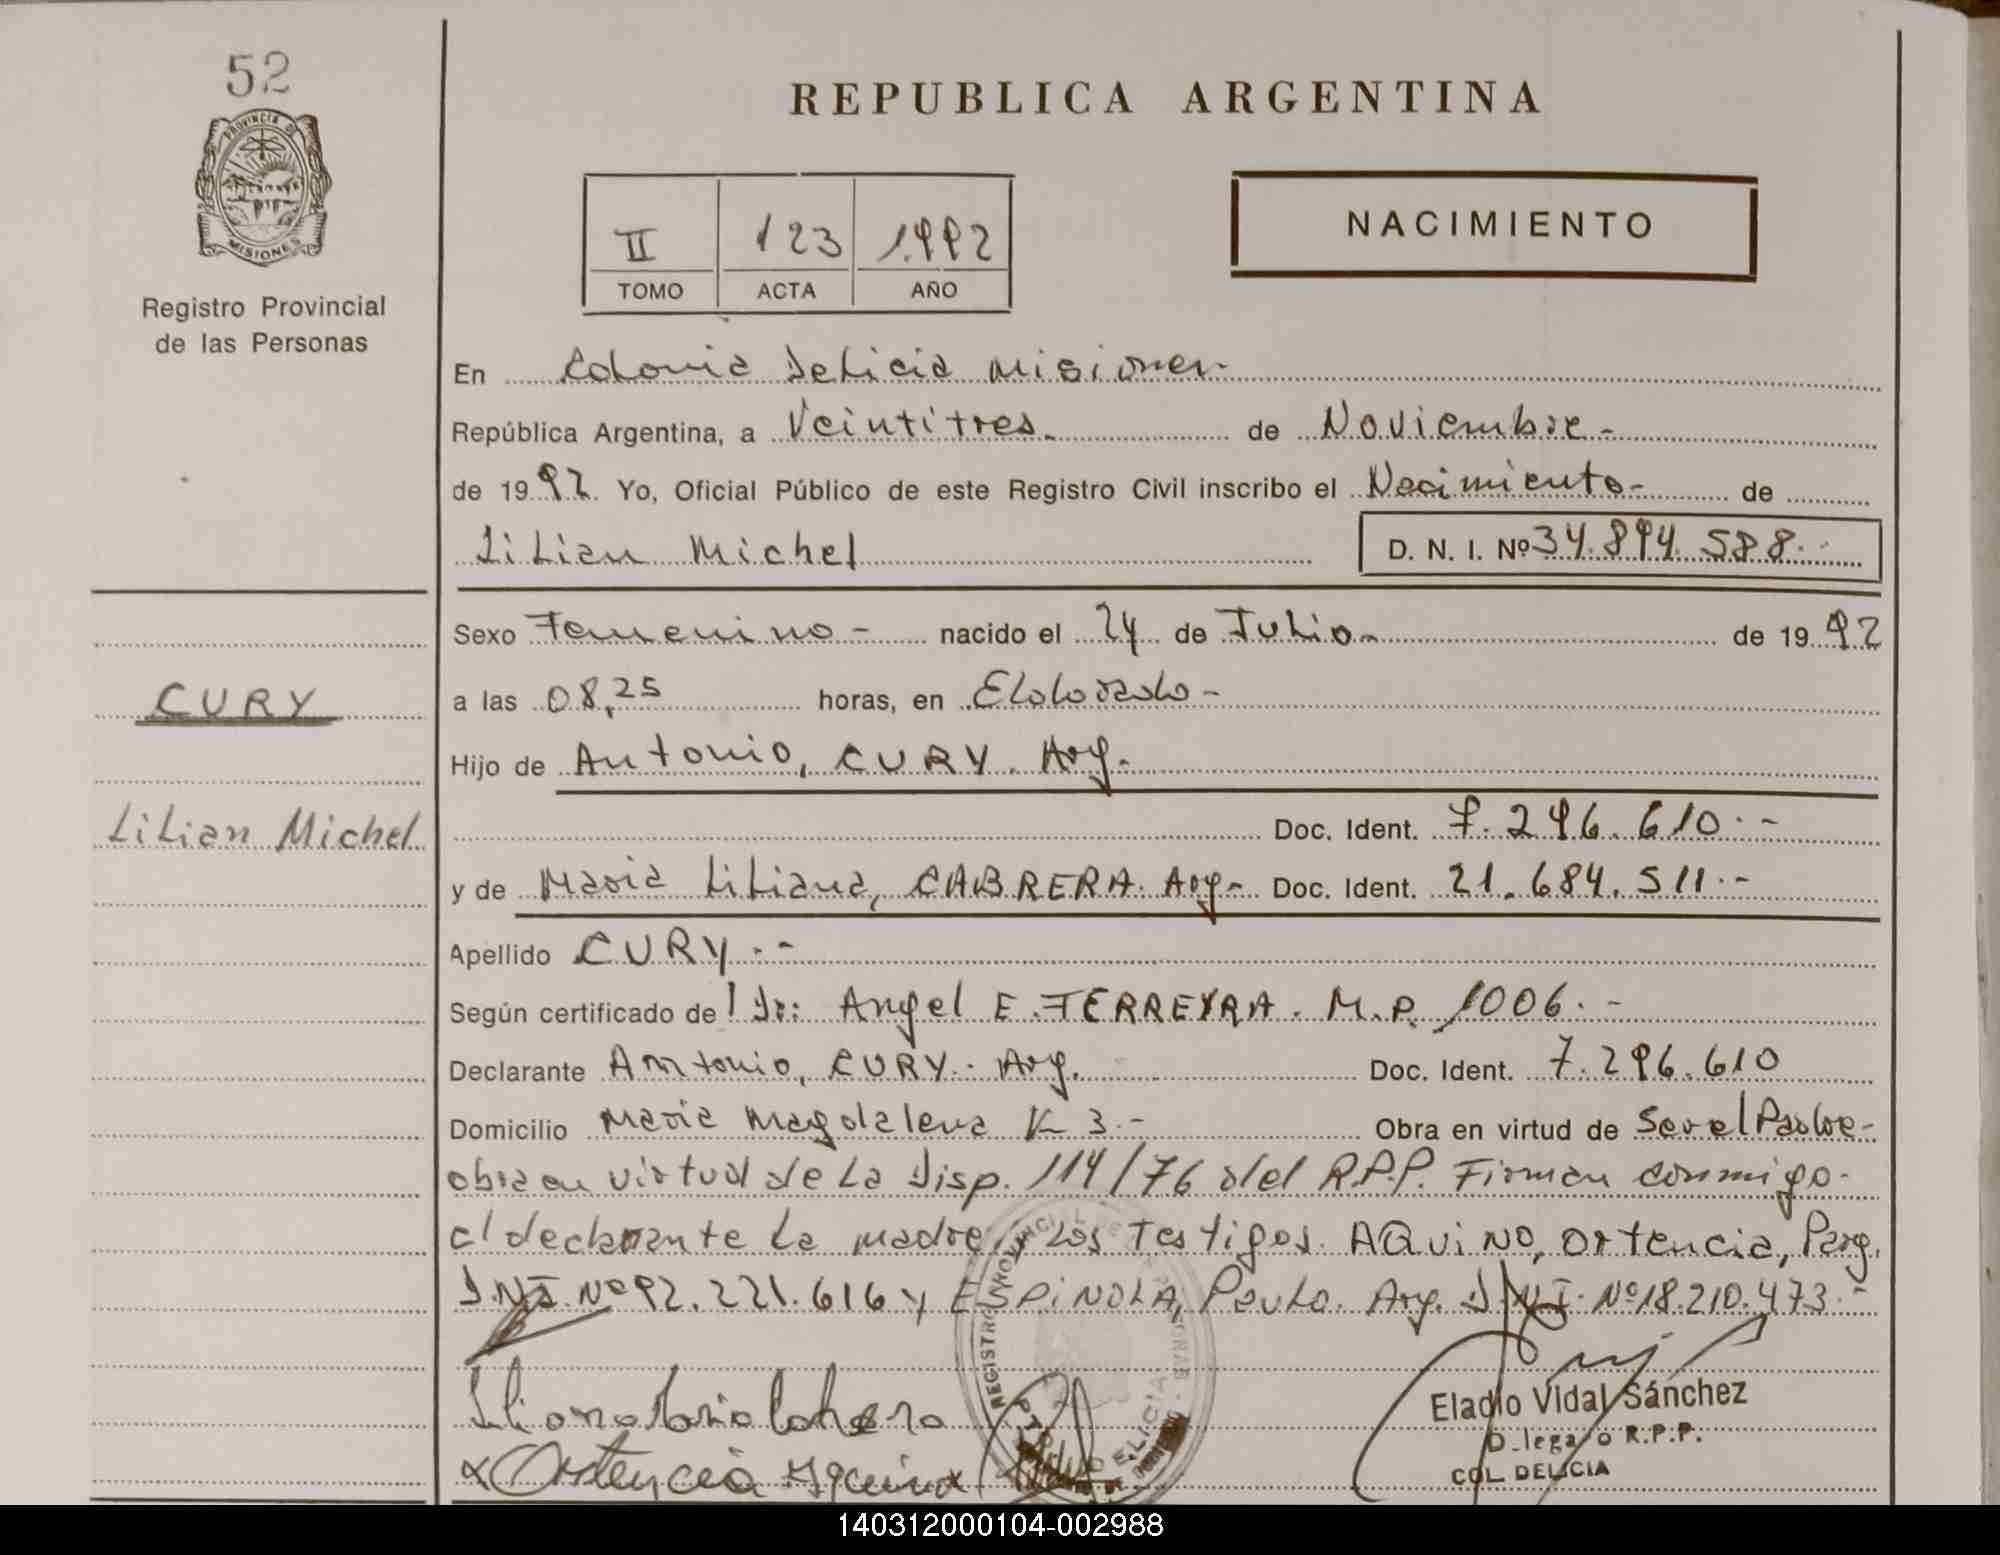 52
PROVINCIA DE
MISIONES
Registro Provincial
de las Personas
CURY
Lilian Michel
REPUBLICA ARGENTINA
NACIMIENTO
II 123 1.992
TOMO ACTA AÑO
En Colonia Delicia Misiones-
República Argentina, a Veintitres- de Noviembre-
de 1992. Yo, Oficial Público de este Registro Civil inscribo el Nacimiento- de
Lilian Michel D. N. I. Nº 34.894.588.-
Sexo Femenino- nacido el 24 de Julio- de 1992
a las 08,25 horas, en Eldorado-
Hijo de Antonio, CURY. Arg.-
Doc. Ident. 7.296.610.-
y de Maria Liliana, CABRERA. Arg- Doc. Ident. 21.684.511.-
Apellido CURY.-
Según certificado de Dr: Angel E. FERREYRA. M.P. 1006.-
Declarante Antonio, CURY. Arg. Doc. Ident. 7.296.610
Domicilio Maria Magdalena K 3.- Obra en virtud de Ser el Padre-
obra en virtud de la Disp. 114/76 del R.P.P. Firman conmigo-
el declarante la madre y los testigos. AQUINO, Ortencia, Parg.
D.N.I. Nº 92.221.616 y ESPINOLA, Paulo. Arg. D.N.I. Nº 18.210.473.-
REGISTRO PROVINCIAL DE LAS PERSONAS
Liliana Maria Cabrera
Eladio Vidal Sánchez
Delegado R.P.P.
COL. DELICIA
x Ortencia Aquino x
140312000104-002988